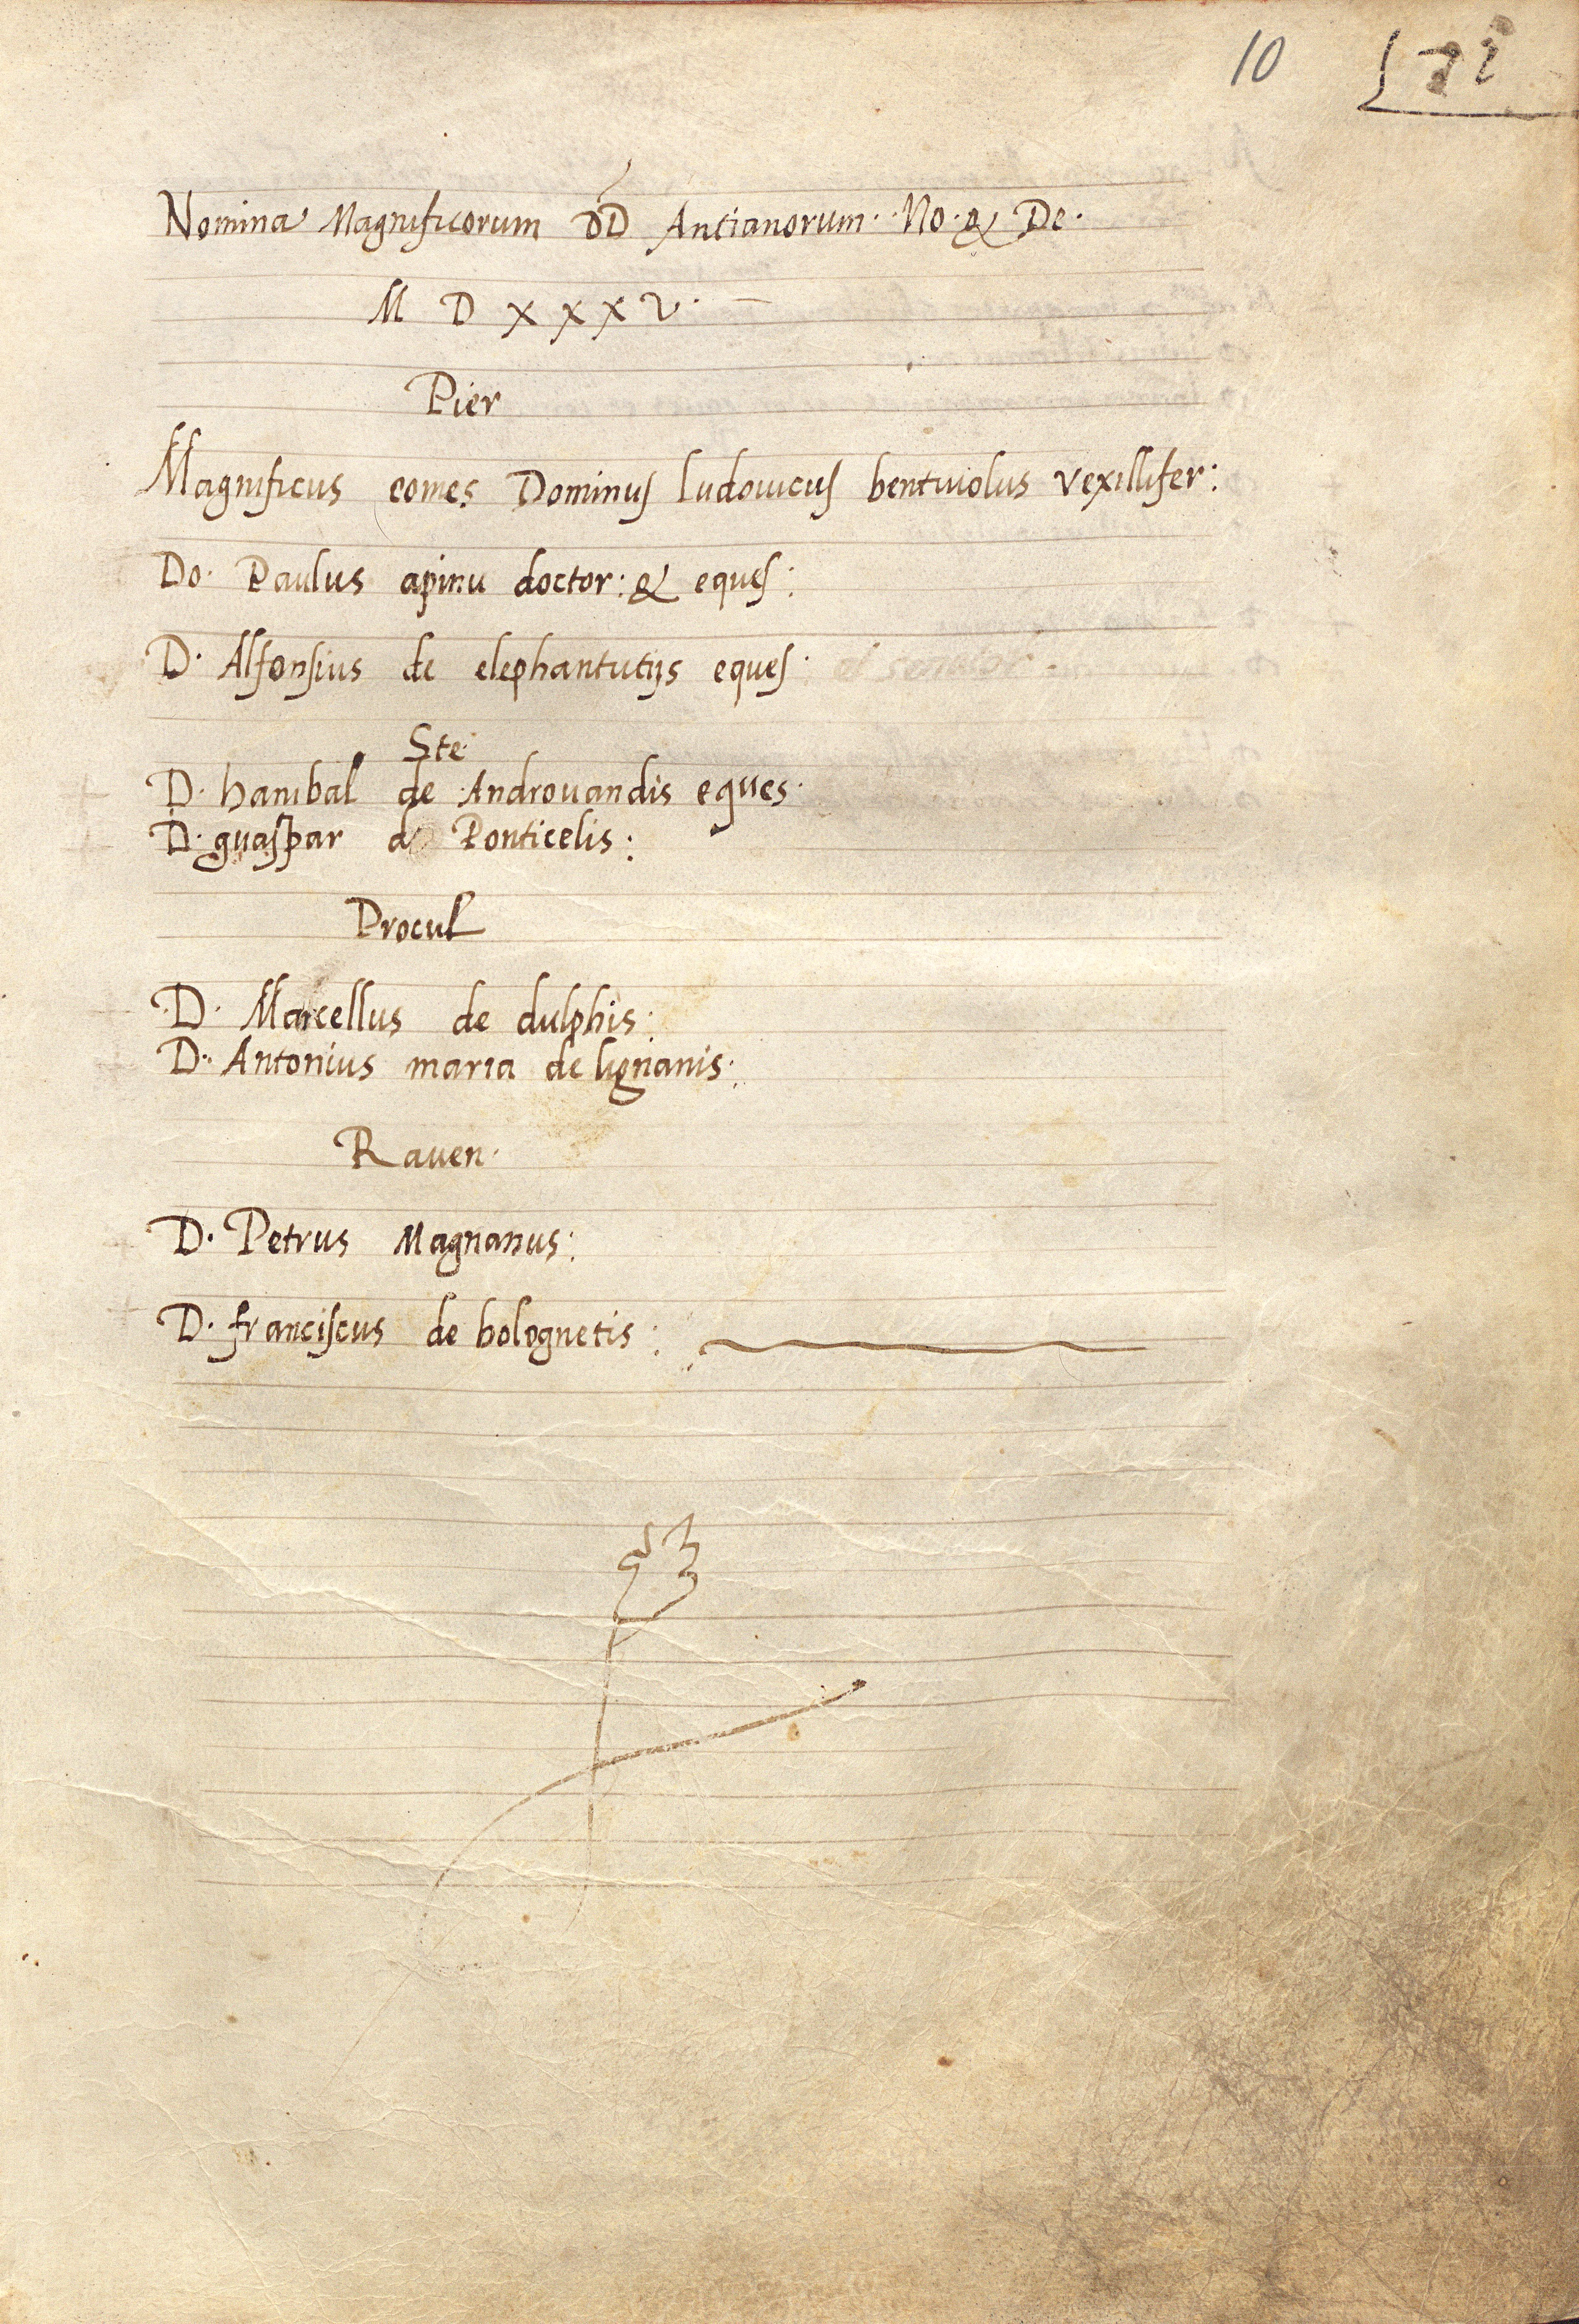 10
Nomina Magnificorum DD Antianorum. No. & De.
M D X X X V.
Pier
Magnificus comes Dominus ludouicus bentiuolus vexillifer:
Do. Paulus apinu doctor: & eques:
D. Alfonsius de elephantutijs eques. et senator.
Ste.
D. hanibal de Androuandis eques.
D. guaspar d Ponticelis:
Procul
D. Marcellus de dulphis:
D. Antonius maria de lignanis:
Rauen.
D. Petrus Magnanus:
D. franciscus de bolognetis: